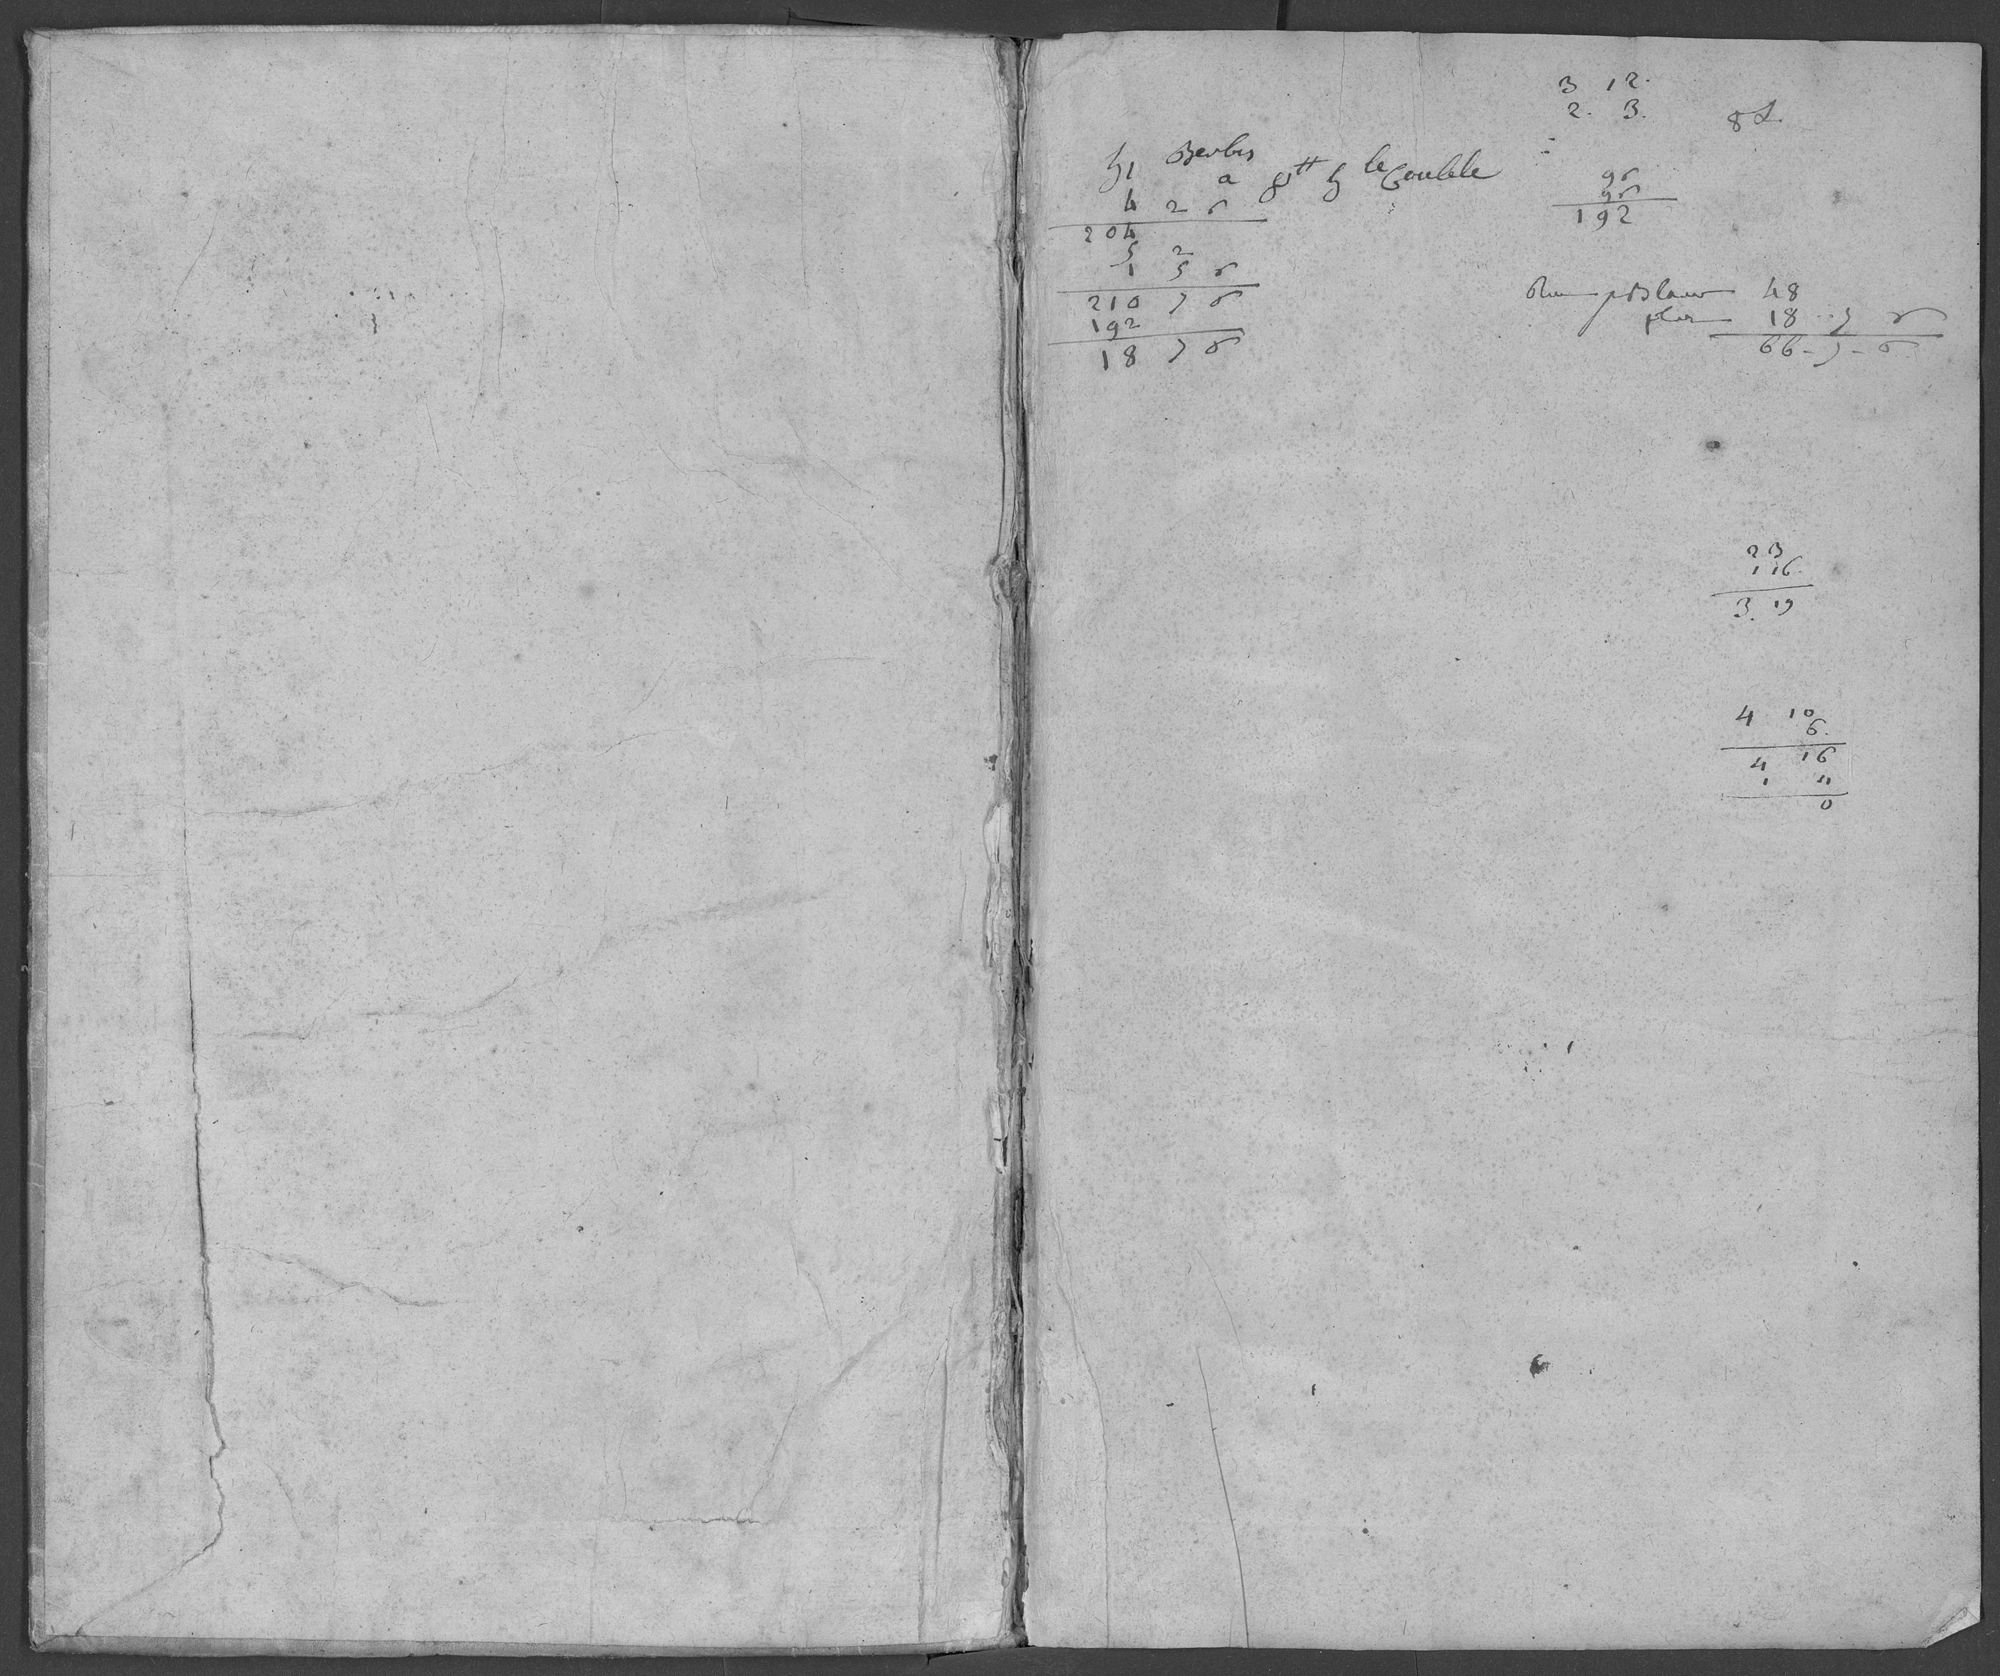 3 12.
2. 3.
8 L.
51 Berbis
a 8# 5 le Couble
4 2 6
204
5 2
1 5 6
210 7 6
192
18 7 6
96
96
192
48
plus 18 - 7 6
66 - 7 - 6
2 3
1 16.
3. 19
4 10
6.
4 16
1 11
0